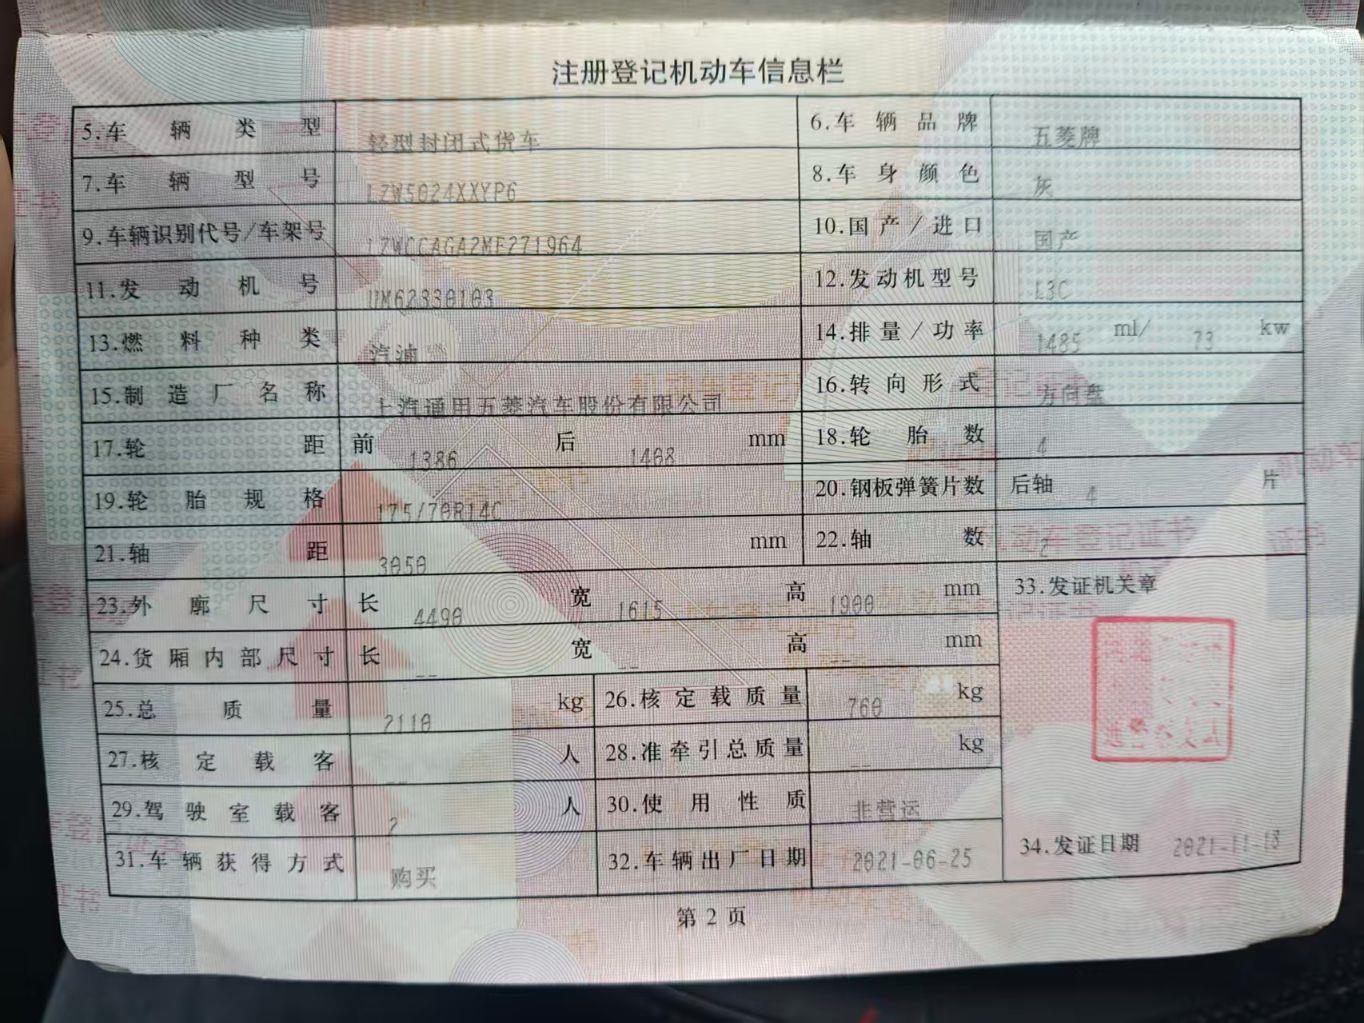 注册登记机动车信息栏
5.车辆类型 轻型封闭式货车 6.车辆品牌 五菱牌
7.车辆型号 LZW5024XXYP6 8.车身颜色 灰
9.车辆识别代号/车架号 LZWCCAGA2ME271964 10.国产/进口 国产
11.发动机号 UM62330103 12.发动机型号 L3C
13.燃料种类 汽油 14.排量/功率 1485 ml/ 73 kw
15.制造厂名称 上汽通用五菱汽车股份有限公司 16.转向形式 方向盘
17.轮距 前 1386 后 1408 mm 18.轮胎数 4
19.轮胎规格 175/70R14C 20.钢板弹簧片数 后轴 4 片
21.轴距 3050 mm 22.轴数 2
23.外廓尺寸 长 4490 宽 1615 高 1900 mm 33.发证机关章
24.货厢内部尺寸 长 -- 宽 -- 高 -- mm
25.总质量 2110 kg 26.核定载质量 760 kg
27.核定载客 -- 人 28.准牵引总质量 -- kg
29.驾驶室载客 2 人 30.使用性质 非营运
31.车辆获得方式 购买 32.车辆出厂日期 2021-06-25 34.发证日期 2021-11-18
第2页